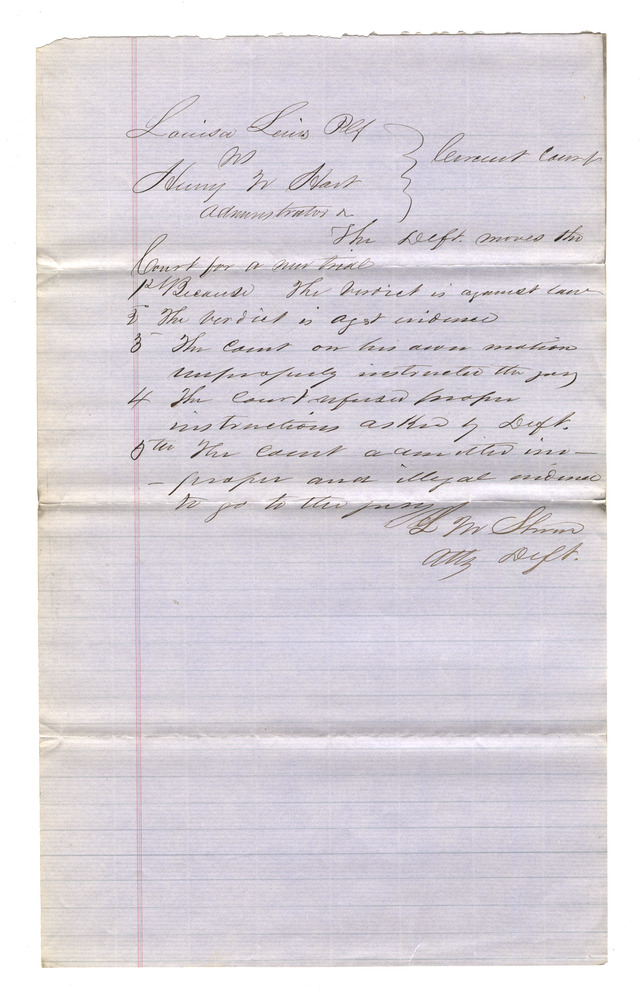 Louisa Lewis Plf
vs
Circuit Court
Henry N Hart
Administrator &
The Deft. moves the
Court for a new trial
1st Because The Verdict is against law
2 The Verdict is agst evidence
3 The Court on his own motion
improperly instructed the jury
4 The Court refused proper
instructions asked by Deft.
5th The Court admitted im-
- proper and illegal evidence
to go to the jury
Atty Deft.